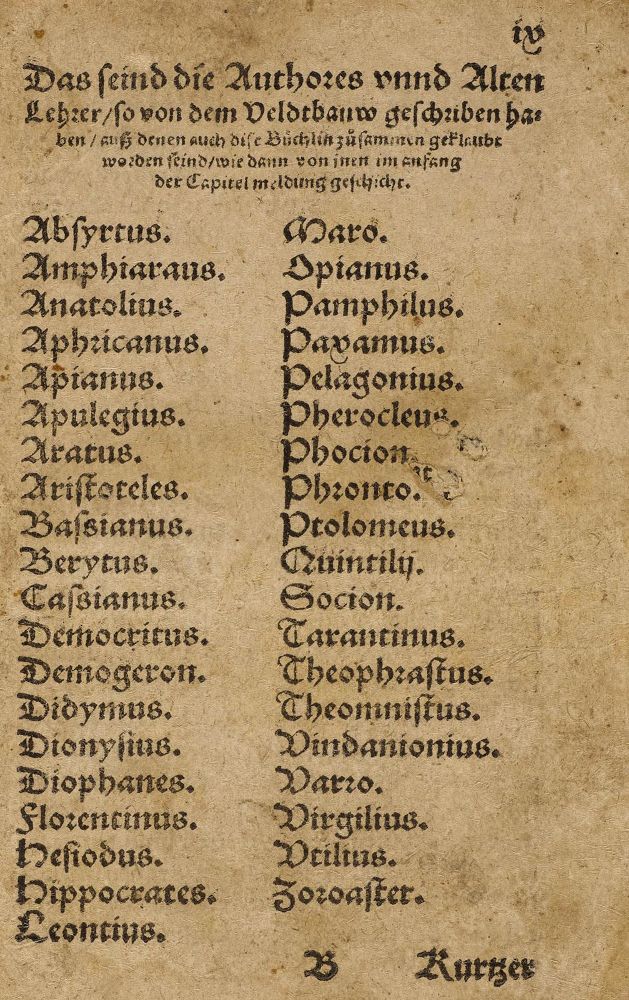 ix
Das seind die Authores vnnd Alten
Lehrer/so von dem Veldtbauw geschriben ha⸗
ben/auß denen auch dise Büchlin zůsammen geklaubt
worden seind/wie dann von jnen im anfang
der Capitel meldung geschicht.
Absyrtus.
Amphiaraus.
Anatolius.
Aphricanus.
Apianus.
Apulegius.
Aratus.
Aristoteles.
Bassianus.
Berytus.
Cassianus.
Democritus.
Demogeron.
Didymus.
Dionysius.
Diophanes.
Florentinus.
Hesiodus.
Hippocrates.
Leontius.
Maro.
Opianus.
Pamphilus.
Paxamus.
Pelagonius.
Pherocleus.
Phocion.
Phronto.
Ptolomeus.
Quintilij.
Socion.
Tarantinus.
Theophrastus.
Theomnistus.
Vindanionius.
Varro.
Virgilius.
Vtilius.
Zoroaster.
B Kurtzer